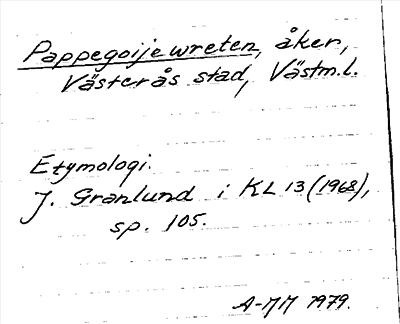 Pappegoijewreten, åker,
Västerås stad, Västm.l.
Etymologi.
J. Granlund i KL 13 (1968),
sp. 105.
A-MM 1979.